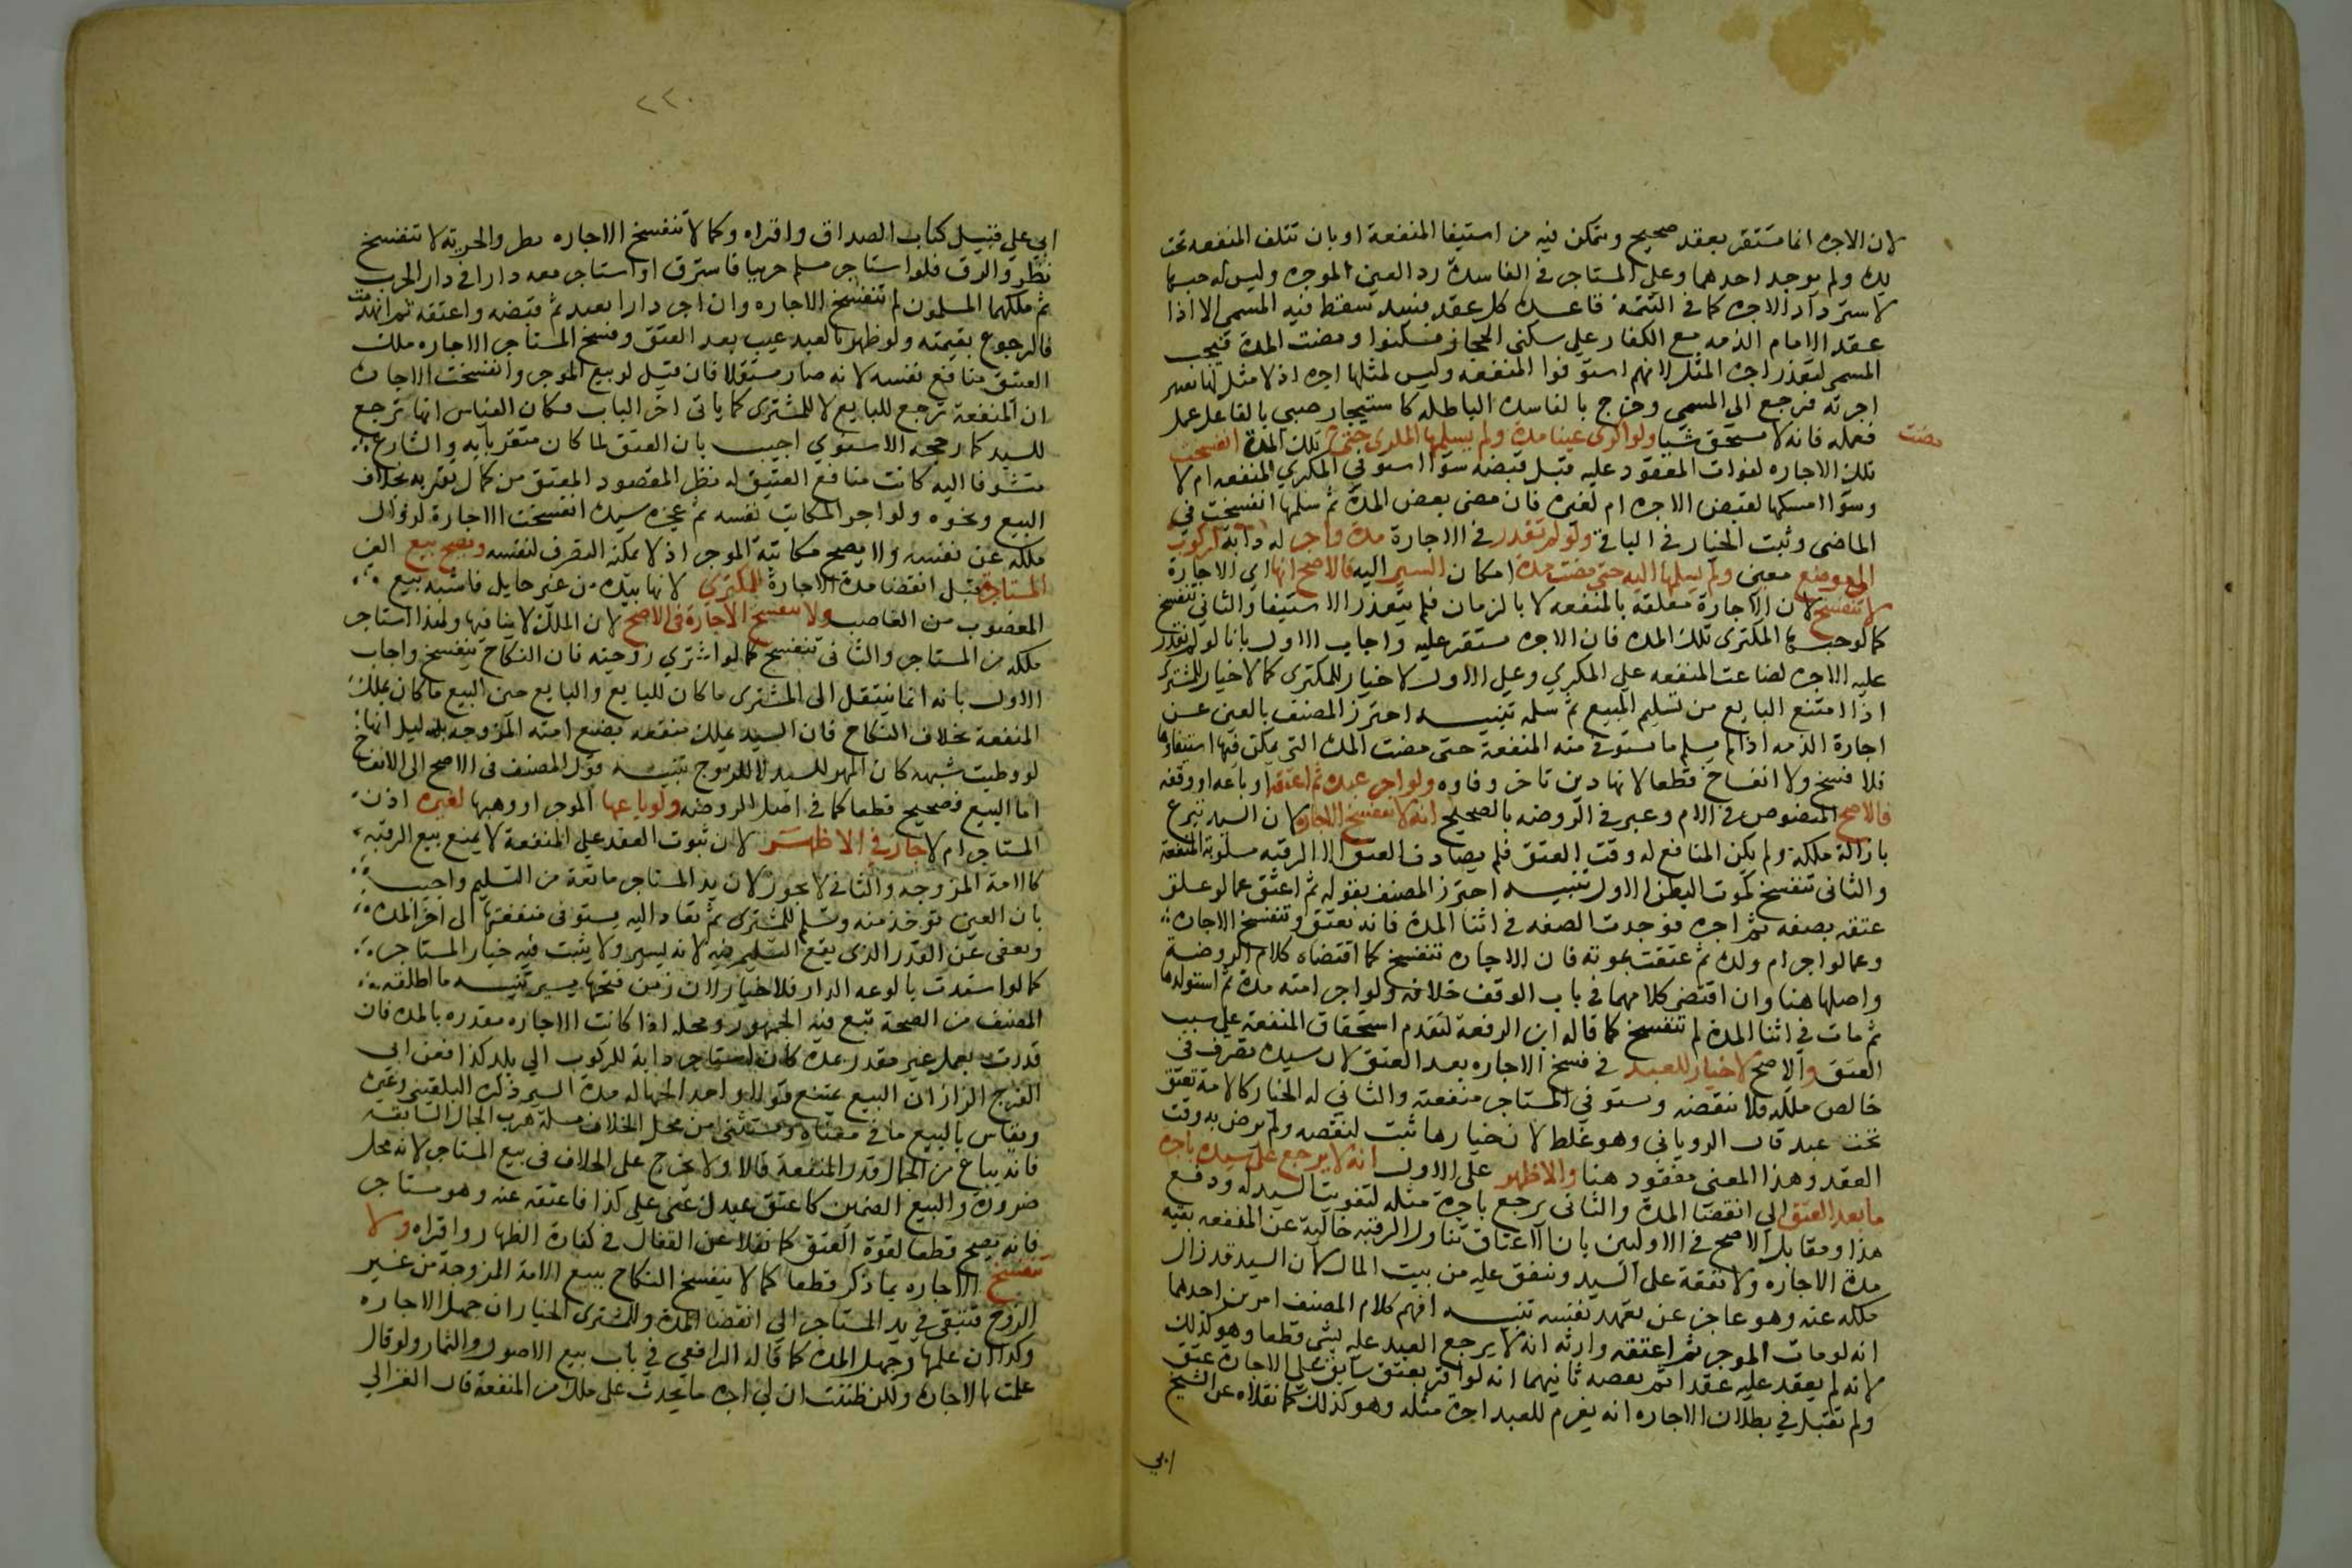 لان الاجره انما تستقر بعقد صحيح ويتمكن فيه من استيفا المنفعة او بان تتلف المنفعه تحت
يده ولم يوجد احدهما وعلي المستاجر في الفاسدة رد العين الموجره وليس له حبسها
لاسترداد الاجره كما في التتمة قاعده كل عقد فسد سقط فيه المسمي الا اذا
عقد الامام الذمه مع الكفار علي سكني الحجاز فسكنوا ومضت المدة فيجب
المسمي لتعذر اجرة المثل لانهم استوفوا المنفعه وليس لمثلها اجره اذ لا مثل لها تعتبر
اجرته فرجع الي المسمي وخرج بالفاسده الباطله كاستيجار صبي بالغا علي عمل
فعمله فانه لا يستحق شيا ولو اكري عينا مدة ولم يسلمها المكري حتي مضت تلك المدة انفسخت
تلك الاجاره لفوات المعقود عليه قبل قبضه سوا استوفي المكري المنفعه ام لا
وسوا امسكها لقبض الاجره ام لغيره فان مضي بعض المدة ثم سلمها انفسخت في
الماضي وثبت الخيار في الباقي ولو لم تقدر في الاجارة مدة واجر له دابة لركوب
الي موضع معين ولم يسلمها اليه حتي مضت مدة امكان السير اليه فالاصح انها اي الاجارة
لا تنفسخ لان الاجارة معلقه بالمنفعه لا بالزمان فلم يتعذر الاستيفا والثاني تنفسخ
كما لو حبسها المكتري تلك المده فان الاجره تستقر عليه واجاب الاول بانا لو لم نقدر
عليه الاجره لضاعت المنفعه علي المكري وعلي الاول لا خيار للمكتري كما لا خيار للمشتري
اذا امتنع البايع من تسليم المبيع ثم سلمه تنبيه احترز المصنف بالعين عن
اجارة الذمه اذا لم يسلم ما تستوفي منه المنفعة حتي مضت المدة التي يمكن فيها استيفاوها
فلا فسخ ولا انفساخ قطعا لانها دين تاخر وفاوه ولو اجر عبده ثم اعتقه او باعه او وقفه
فالاصح المنصوص في الام وعبر في الروضه بالصحيح انه لا تنفسخ الاجارة لان السيد تبرع
بازالة ملكه ولم يكن المنافع له وقت العتق فلم يصادف العتق الا الرقبه مسلوبة المنفعة
والثاني تنفسخ كموت البطن الاول تنبيه احترز المصنف بقوله ثم اعتق عما لو علق
عتقه بصفه ثم اجره فوجدت الصفه في اثنا المدة فانه يعتق وتنفسخ الاجاره
وعما لو اجر ام ولده ثم عتقت بموته فان الاجاره تنفسخ كما اقتضاه كلام الروضة
واصلها هنا وان اقتضي كلامهما في باب الوقف خلافه ولو اجر امته مدة ثم استولدها
ثم مات في اثنا المدة لم تنفسخ كما قاله ابن الرفعة لتقدم استحقاق المنفعة علي سبب
العتق والاصح لا خيار للعبد في فسخ الاجاره بعد العتق لان سيده تصرف في
خالص ملكه فلا ننقضه ويستوفي المستاجر منفعته والثاني له الخيار كالامة تعتق
تحت عبد قال الروياني وهو غلط لان خيارها ثبت لنقصه ولم ترض به وقت
العقد وهذا المعني مفقود هنا والاظهر علي الاول انه لا يرجع علي سيده باجرة
ما بعد العتق الي انقضا المدة والثاني يرجع باجرة مثله لتفويت السيد له ودفع
هذا ومقابل الاصح في الاولين بان الاعتاق تناول الرقبه خالية عن المنفعه بقية
مدة الاجاره ولا نفقة علي السيد وينفق عليه من بيت المال لان السيد قد زال
ملكه عنه وهو عاجز عن تعهد نفسه تنبيه افهم كلام المصنف امرين احدهما
انه لو مات الموجر ثم اعتقه وارثه انه لا يرجع العبد عليه بشي قطعا وهو كذلك
لانه لم يعقد عليه عقدا ثم نقضه ثانيهما انه لو اقر بعتق سابق علي الاجارة عتق
ولم تقبل في بطلان الاجاره انه يغرم للعبد اجرة مثله وهو كذلك كما نقلاه عن الشيخ
ابي
٢٢٠
ابي علي قبيل كتاب الصداق واقراه وكما لا تنفسخ الاجاره بطرو الحرية لا تنفسخ
بطرو الرق فلو استاجر مسلم حربيا فاسترق او استاجر منه دارا في دار الحرب
ثم ملكها المسلمون لم تنفسخ الاجاره وان اجر دارا بعبد ثم قبضه واعتقه ثم انهدمت
فالرجوع بقيمته ولو ظهر بالعبد عيب بعد العتق وفسخ المستاجر الاجاره ملك
العتيق منافع نفسه لانه صار مستقلا فان قيل لو بيع الموجر وانفسخت الاجارة
ان المنفعة ترجع للبايع لا للمشتري كما ياتي اخر الباب فكان القياس انها ترجع
للسيد كما رجحه الاسنوي اجيب بان العتق لما كان متقربا به والشارع
متشوفا اليه كانت منافع العتيق له نظرا لمقصود المعتق من كمال تقربه بخلاف
البيع ونحوه ولو اجر المكاتب نفسه ثم عجزه سيده انفسخت الاجارة لزوال
ملكه عن نفسه ولا يصح مكاتبة الموجر اذ لا يمكنه التصرف لنفسه ويصح بيع العين
المستاجرة قبل انقضا مدة الاجارة للمكتري لانها بيده من غير حايل فاشبه بيع
المغصوب من الغاصب ولا تنفسخ الاجارة في الاصح لان الملك لا ينافيها ولهذا استاجر
ملكه من المستاجر والثاني تنفسخ كما لو اشتري زوجته فان النكاح ينفسخ واجاب
الاول بانه انما ينتقل الي المشتري ما كان للبايع والبايع حين البيع ما كان يملك
المنفعة بخلاف النكاح فان السيد يملك منفعه بضع امته المزوجه بدليل انها
لو وطيت بشبهه كان المهر للسيد لا للزوج تنبيه قول المصنف في الاصح الي الانفساخ
اما البيع فصحيح قطعا كما في اصل الروضه ولو باعها الموجر او وهبها لغيره اذن
المستاجر ام لا جاز في الاظهر لان ثبوت العقد علي المنفعة لا يمنع بيع الرقبه
كالامة المزوجه والثاني لا يجوز لان يد المستاجر مانعة من التسليم واجيب
بان العين توخذ منه وتسلم للمشتري ثم تعاد اليه يستوفي منفعتها الي اخر المدة
ويعفي عن القدر الذي يقع التسليم فيه لانه يسير ولا يثبت فيه خيار المستاجر
كما لو استدت بالوعه الدار فلا خيار لان زمن فتحها يسير تنبيه ما اطلقه
المصنف من الصحة تبع فيه الجمهور ومحله اذا كانت الاجاره مقدره بالمده فان
قدرت بعمل غير مقدر بمدة كان استاجر دابة للركوب الي بلد كذا فعن ابي
الفرج الزاز ان البيع يمتنع قولا واحدا لجهالة مدة السير ذكره البلقيني وغيره
ويقاس بالبيع ما في معناه ويستثني من محل الخلاف مسلة هرب الجمال السابقه
فانه يباع من الجمال قدر المنفعة قالا ولا يخرج علي الخلاف في بيع المستاجر لانه محل
ضرورة والبيع الضمني كاعتق عبدك عني علي كذا فاعتقه عنه وهو مستاجر
فانه يصح قطعا لقوة العتق كما نقلا عن القفال في كفارة الظهار واقراه ولا
تنفسخ الاجاره بما ذكر قطعا كما لا ينفسخ النكاح ببيع الامة المزوجة من غير
الزوج فتبقي في يد المستاجر الي انقضا المدة وللمشتري الخيار ان جهل الاجاره
وكذا ان علمها وجهل المدة كما قاله الرافعي في باب بيع الاصول والثمار ولو قال
علمت بالاجارة ولكن ظننت ان لي اجرة ما يحدث علي ملك من المنفعة قال الغزالي